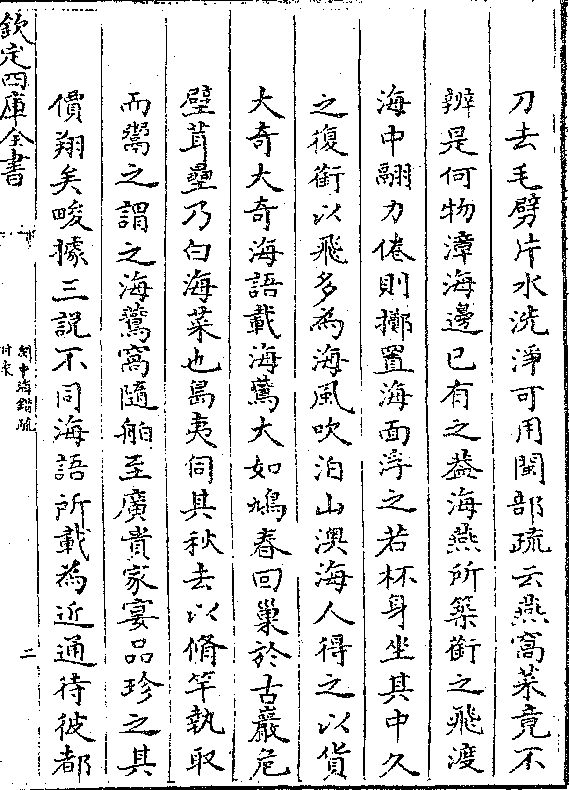 刀去毛劈片水洗淨可用閩部疏云燕窩菜竟不
辨是何物漳海邊已有之葢海燕所築銜之飛渡
海中翮力倦則擲置海面浮之若杯身坐其中久
之復銜以飛多為海風吹泊山澳海人得之以貨
大奇大奇海語載海鷰大如鳩春回巢於古巖危
壁茸壘乃白海菜也島夷伺其秋去以脩竿執取
而鬻之謂之海鷰窩隨舶至廣貴家宴品珍之其
價翔矣畯據三説不同海語所載為近通待彼都
欽定四庫全書
閩中海錯疏
二